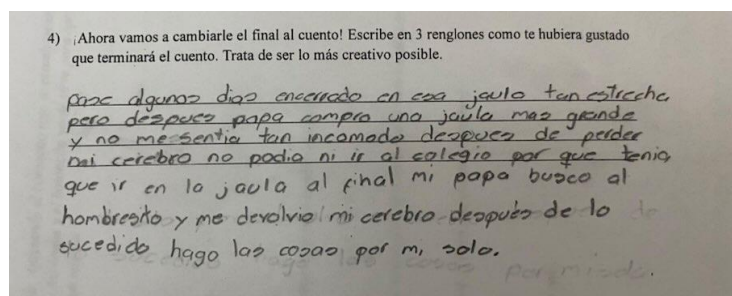 4) ¡Ahora vamos a cambiarle el final al cuento! Escribe en 3 renglones como te hubiera gustado
que terminará el cuento. Trata de ser lo más creativo posible.
pase algunos dias encerrado en esa jaula tan estrecha,
pero despues papa compro una jaula mas grande
y no me sentia tan incomodo despues de perder
mi cerebro no podia ni ir al colegio por que tenia
que ir en la jaula al final mi papa busco al
hombresito y me devolvio mi cerebro después de lo
sucedido hago las cosas por mi solo.